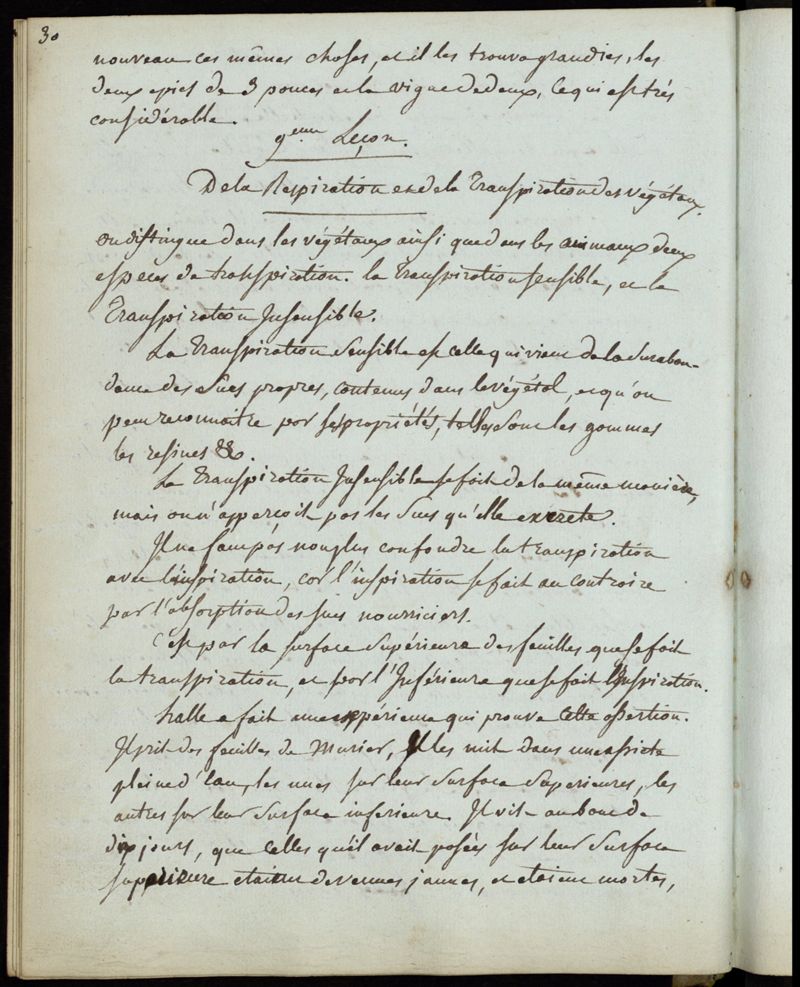 30
nouveau ces mêmes choses, et il les trouva grandies, les
deux epiet de 3 pouces et la vigne de deux, ce qui est très
considérable.
9eme Leçon.
De la Respiration et de la Transpiration des végétaux.
on distingue dans les végétaux ainsi que dans les animaux deux
especes de transpiration. la Transpiration sensible, et la
Transpiration Insensible.
La Transpiration sensible est celle qui vient de la surabon-
dance des sucs propres, contenus dans le végétal, et qu'on
peut reconnoitre par ses propriétés, telles sont les gommes
les resines &&.
La Transpiration Insensible se fait de la même manière,
mais on n'apperçoit pas les sucs qu'elle excrete.
Il ne faut pas non plus confondre la transpiration
avec l'inspiration, car l'inspiration se fait au contraire
par l'absorption des sucs nourriciers.
C'est par la surface supérieure des feuilles que se fait
la transpiration, et par l'Inférieure que se fait l'Inspiration.
halle a fait une expérience qui prouve cette assertion.
Il prit des feuilles de Murier, Il les mit dans une assiete
pleine d'eau, les unes sur leur surface superieures, les
autres sur leur surface inferieure. Il vit au bout de
dix jours, que celles qu'il avait posées sur leur surface
superieure etaient devenues jaunes, et etoient mortes,